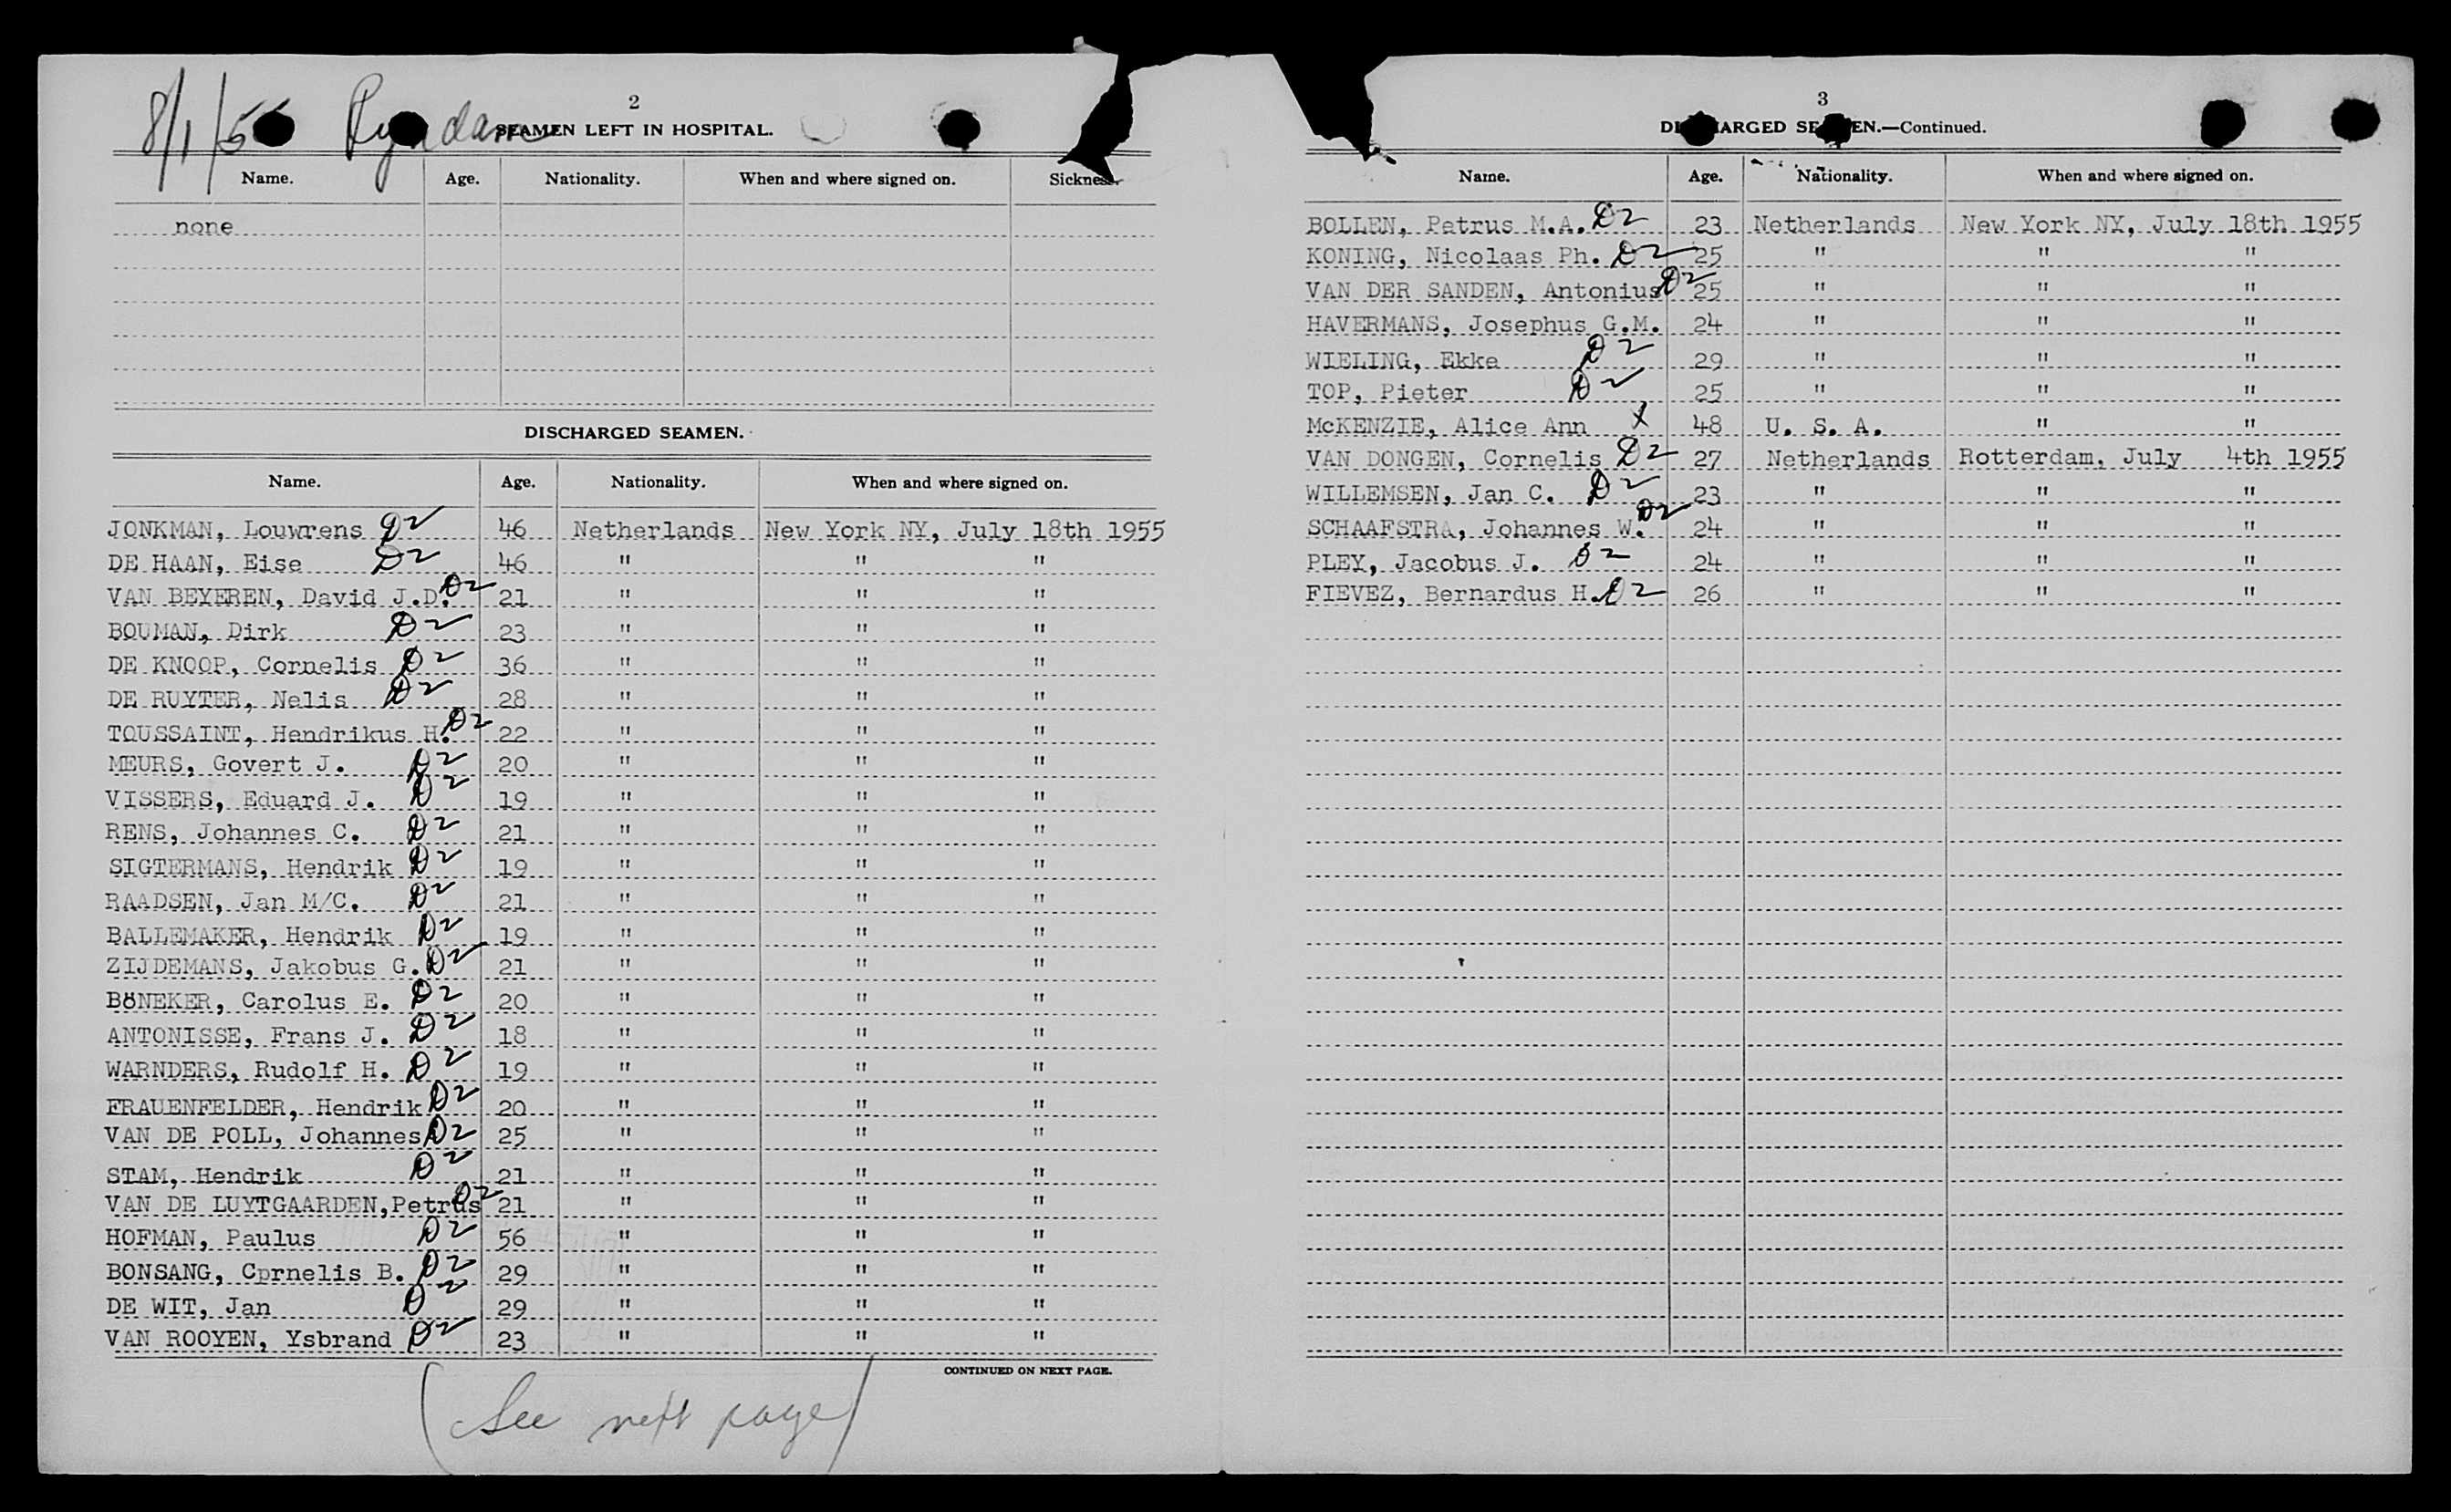 8/1/55 Ryndam
2
SEAMEN LEFT IN HOSPITAL.
Name. Age. Nationality. When and where signed on. Sickness.
none
DISCHARGED SEAMEN.
Name. Age. Nationality. When and where signed on.
JONKMAN, Louwrens D2 46 Netherlands New York NY, July 18th 1955
DE HAAN, Eise D2 46 " " "
VAN BEYEREN, David J.D. D2 21 " " "
BOUMAN, Dirk D2 23 " " "
DE KNOOP, Cornelis D2 36 " " "
DE RUYTER, Nelis D2 28 " " "
TOUSSAINT, Hendrikus H. D2 22 " " "
MEURS, Govert J. D2 20 " " "
VISSERS, Eduard J. D2 19 " " "
RENS, Johannes C. D2 21 " " "
SIGTERMANS, Hendrik D2 19 " " "
RAADSEN, Jan M/C. D2 21 " " "
BALLEMAKER, Hendrik D2 19 " " "
ZIJDEMANS, Jakobus G. D2 21 " " "
BÖNEKER, Carolus E. D2 20 " " "
ANTONISSE, Frans J. D2 18 " " "
WARNDERS, Rudolf H. D2 19 " " "
FRAUENFELDER, Hendrik D2 20 " " "
VAN DE POLL, Johannes D2 25 " " "
STAM, Hendrik D2 21 " " "
VAN DE LUYTGAARDEN, Petrus D2 21 " " "
HOFMAN, Paulus D2 56 " " "
BONSANG, Cprnelis B. D2 29 " " "
DE WIT, Jan D2 29 " " "
VAN ROOYEN, Ysbrand D2 23 " " "
CONTINUED ON NEXT PAGE.
(See next page)
3
DISCHARGED SEAMEN.—Continued.
Name. Age. Nationality. When and where signed on.
BOLLEN, Petrus M.A. D2 23 Netherlands New York NY, July 18th 1955
KONING, Nicolaas Ph. D2 25 " " "
VAN DER SANDEN, Antonius D2 25 " " "
HAVERMANS, Josephus G.M. 24 " " "
WIELING, Ekke D2 29 " " "
TOP, Pieter D2 25 " " "
McKENZIE, Alice Ann X 48 U. S. A. " "
VAN DONGEN, Cornelis D2 27 Netherlands Rotterdam, July 4th 1955
WILLEMSEN, Jan C. D2 23 " " "
SCHAAFSTRA, Johannes W. D2 24 " " "
PLEY, Jacobus J. D2 24 " " "
FIEVEZ, Bernardus H. D2 26 " " "